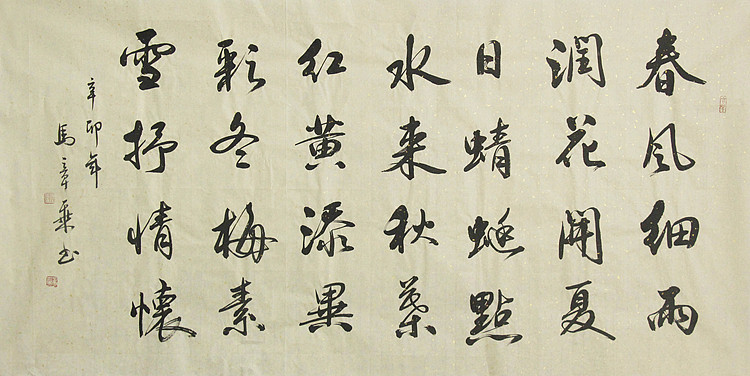 春风細雨
潤花開夏
日蜻蜓點
水来秋葉
红黄添異
彩冬梅素
雪抒情懷
辛卯年
馬章乘书